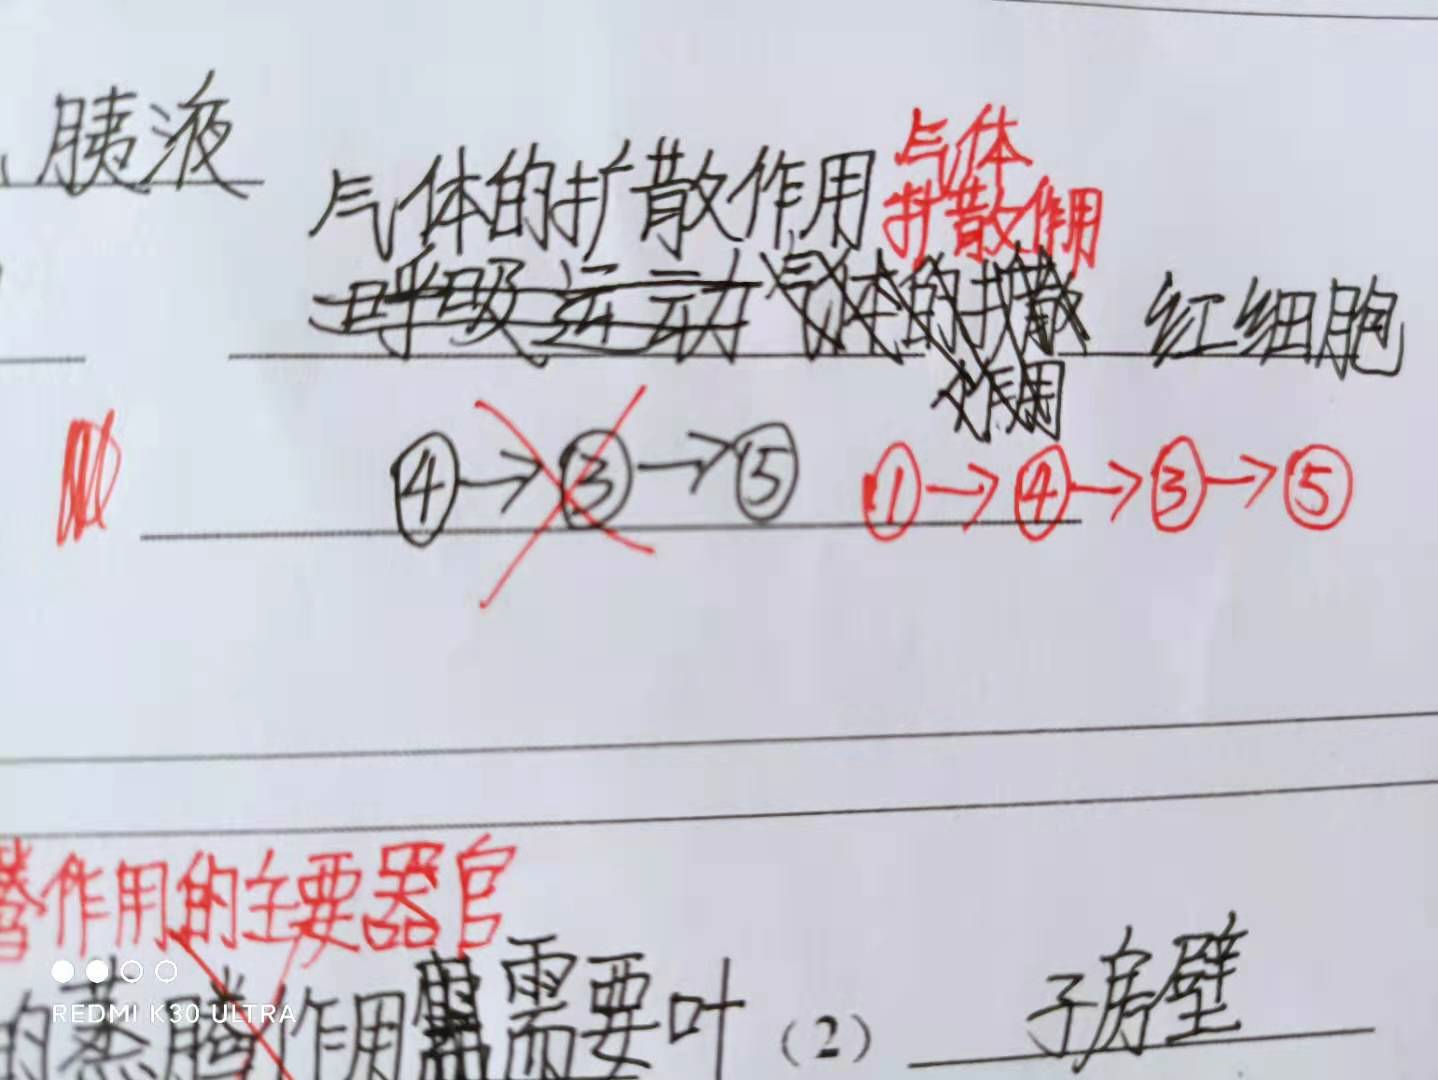 胰液
气体的扩散作用 气体
扩散作用
呼吸运动 气体的扩散 红细胞
作用
④→③→⑤ ①→④→③→⑤
作用的主要器官
的蒸腾作用需要叶 (2) 子房壁
REDMI K30 ULTRA